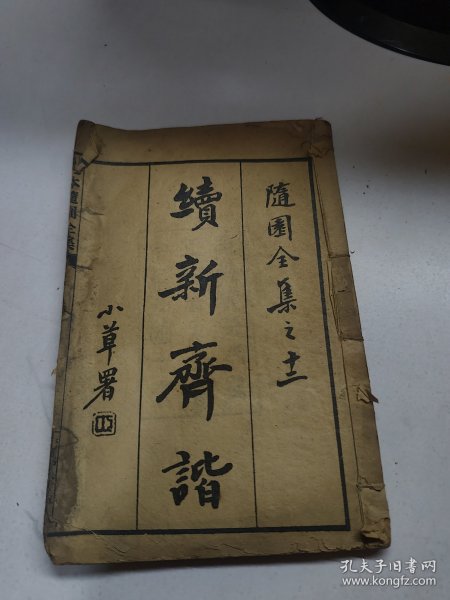 隨園全集之十二
續新齊諧
小草署
孔夫子旧书网
www.kongfz.com